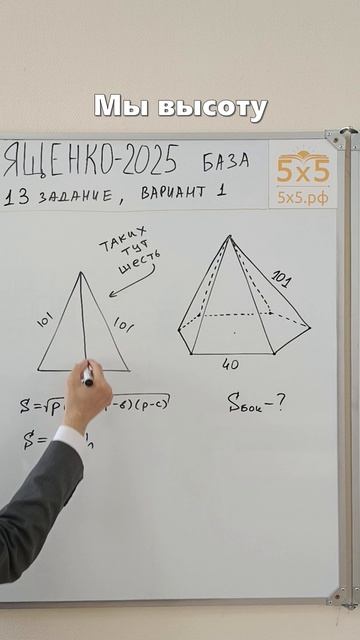 Мы высоту
ЯЩЕНКО-2025 БАЗА
13 ЗАДАНИЕ, ВАРИАНТ 1
5x5
5x5.рф
ТАКИХ
ТУТ
ШЕСТЬ
101
101
101
40
S=√p -в)(p-c)
Sбок-?
S=